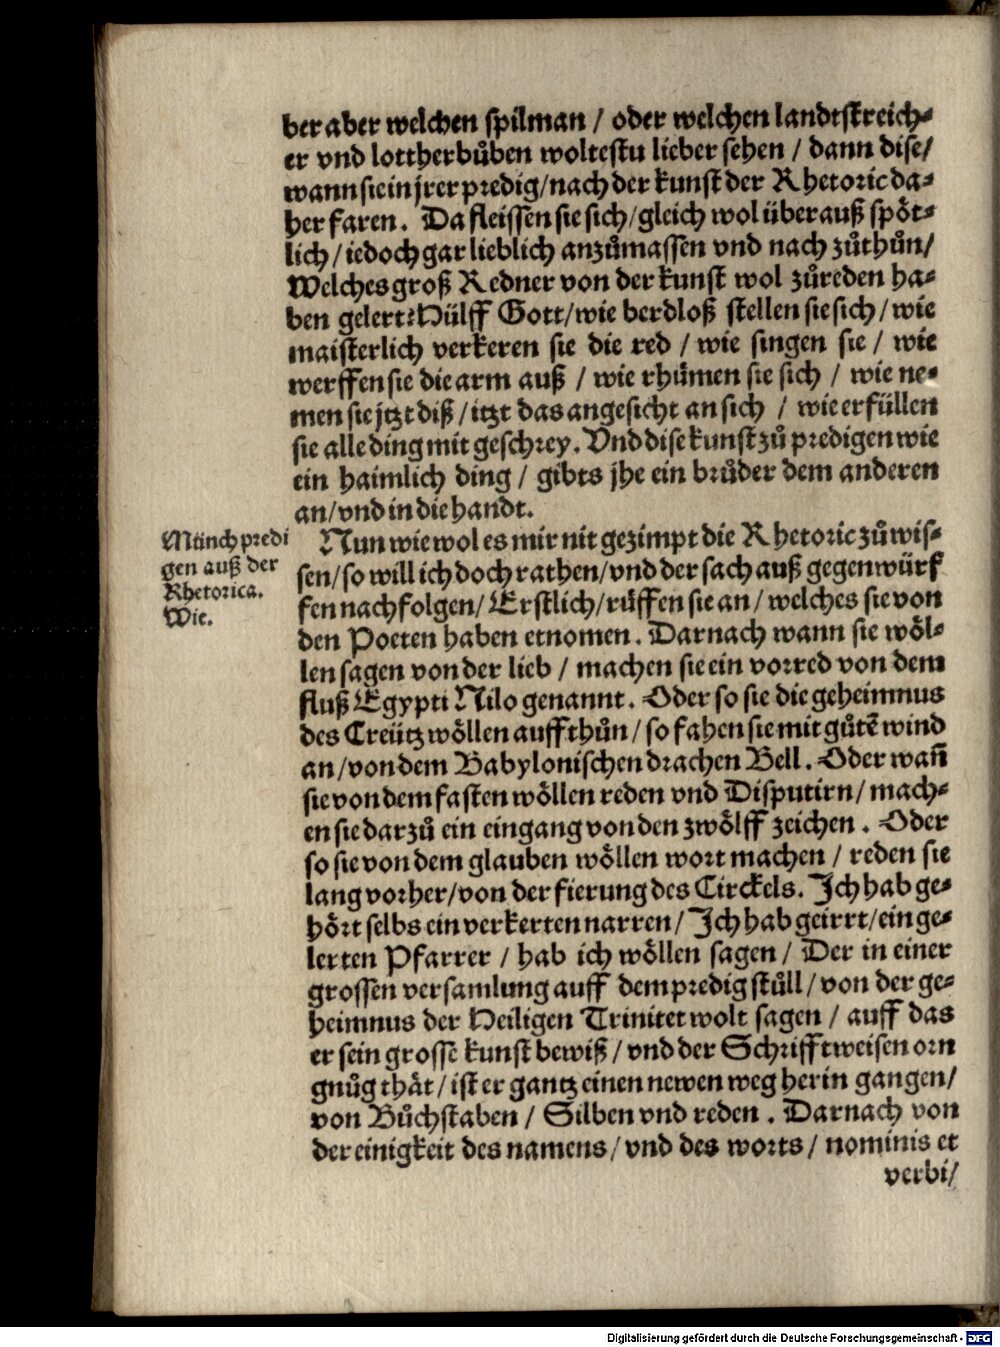 ber aber welchen spilman / oder welchen landtstreich⸗
er vnd lottherbůben woltestu lieber sehen / dann dise/
wann sie in jrer predig/nach der kunst der Rhetoric da⸗
her faren. Da fleissen sie sich/gleich wol überauß spöt⸗
lich/iedoch gar lieblich anzůmassen vnd nach zůthůn/
Welches groß Redner von der kunst wol zůreden ha⸗
ben gelert: Hülff Gott/wie berdloß stellen sie sich/wie
maisterlich verkeren sie die red / wie singen sie / wie
werffen sie die arm auß / wie rhümen sie sich / wie ne⸗
men sie jtzt diß/itzt das angesicht an sich / wie erfüllen
sie alle ding mit geschrey. Vnd dise kunst zů predigen wie
ein haimlich ding / gibts jhe ein brůder dem anderen
an/vnd in die handt.
Münch predi
gen auß der
Rhetorica.
Wie.
Nun wie wol es mir nit gezimpt die Rhetoric zů wis⸗
sen/so will ich doch rathen/vnd der sach auß gegenwürf
fen nachfolgen/Erstlich/rüffen sie an/welches sie von
den Poeten haben etnomen. Darnach wann sie wöl⸗
len sagen von der lieb / machen sie ein vorred von dem
fluß Egypti Nilo genannt. Oder so sie die geheimnus
des Creütz wöllen auffthůn/so fahen sie mit gůtē wind
an/von dem Babylonischen drachen Bell. Oder wañ
sie von dem fasten wöllen reden vnd Disputirn/mach⸗
en sie darzů ein eingang von den zwölff zeichen. Oder
so sie von dem glauben wöllen wort machen / reden sie
lang vorher/von der fierung des Circkels. Ich hab ge⸗
hört selbs ein verkerten narren/Ich hab geirrt/ein ge⸗
lerten Pfarrer / hab ich wöllen sagen / Der in einer
grossen versamlung auff dem predig stůll/von der ge⸗
heimnus der Heiligen Trinitet wolt sagen / auff das
er sein grosse kunst bewiß/vnd der Schrifftweisen orn
gnůg thät/ist er gantz einen newen weg herin gangen/
von Bůchstaben / Silben vnd reden. Darnach von
der einigkeit des namens/vnd des worts/nominis et
verbi/
Digitalisierung gefördert durch die Deutsche Forschungsgemeinschaft - DFG